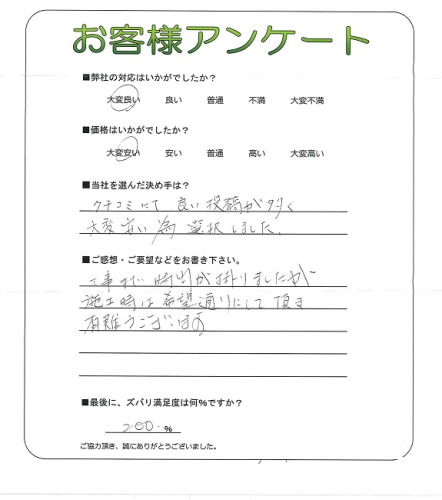 お客様アンケート
■弊社の対応はいかがでしたか？
大変良い 良い 普通 不満 大変不満
■価格はいかがでしたか？
大変安い 安い 普通 高い 大変高い
■当社を選んだ決め手は？
クチコミにて 良い 投稿が多く
大変安い為 選択しました。
■ご感想・ご要望などをお書き下さい。
工事まで 時間が掛りましたが
施工時は希望通りにして頂き
有難うござい
■最後に、ズバリ満足度は何％ですか？
200.%
ご協力頂き、誠にありがとうございました。